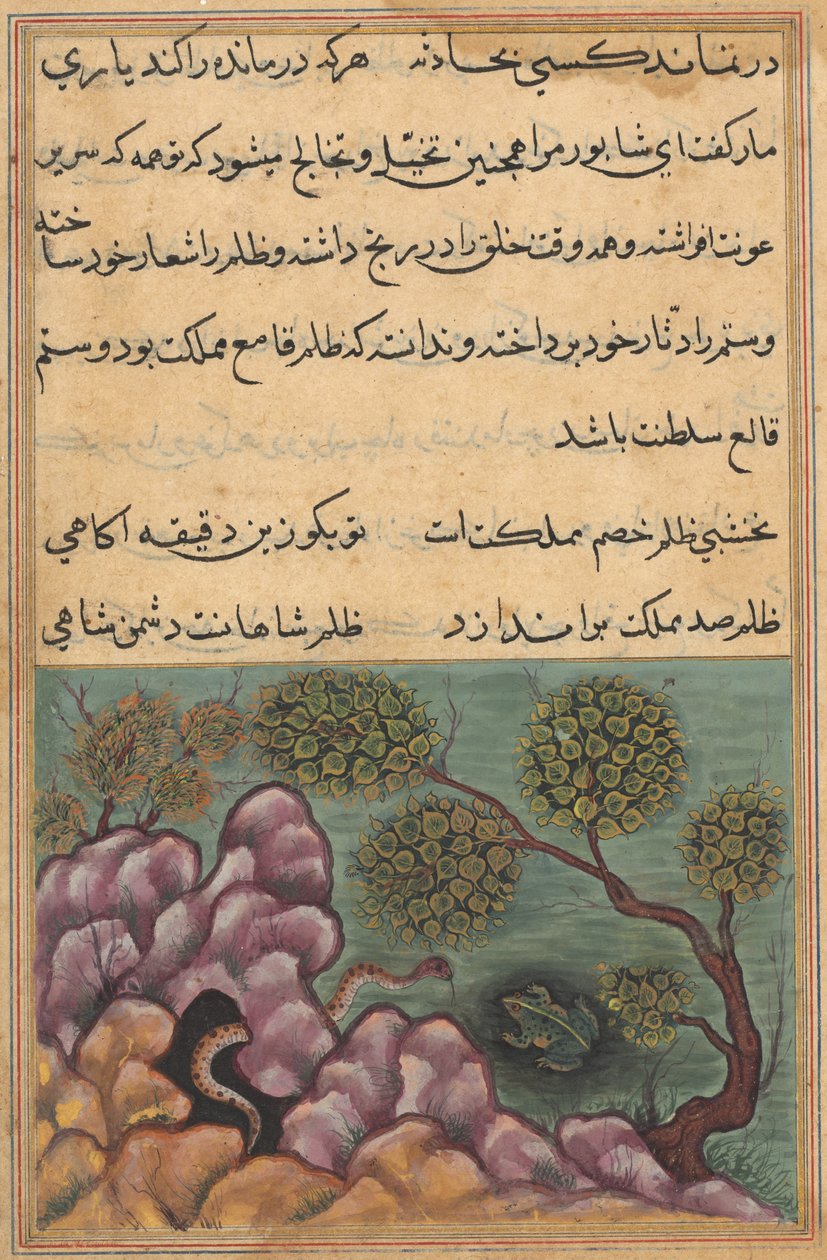 در نماند کسی بحادثه هرکه درمانده را کند یاری
مار کفت ای شابور مرا همچنین تخیّل و تخالج میشود که تو همه که سریر
عونت افراشته و همه وقت خلق را در رنج داشته و ظلم را شعار خود ساخته
و ستم را دثّار خود برداخته و ندانسته که ظلم قامع مملکت بود و ستم
قالع سلطنت باشد
نخشبی ظلم خصم مملکت است تو بکو زین دقیقه اکاهی
ظلم صد مملکت براندازد ظلم شاهانست دشمن شاهی